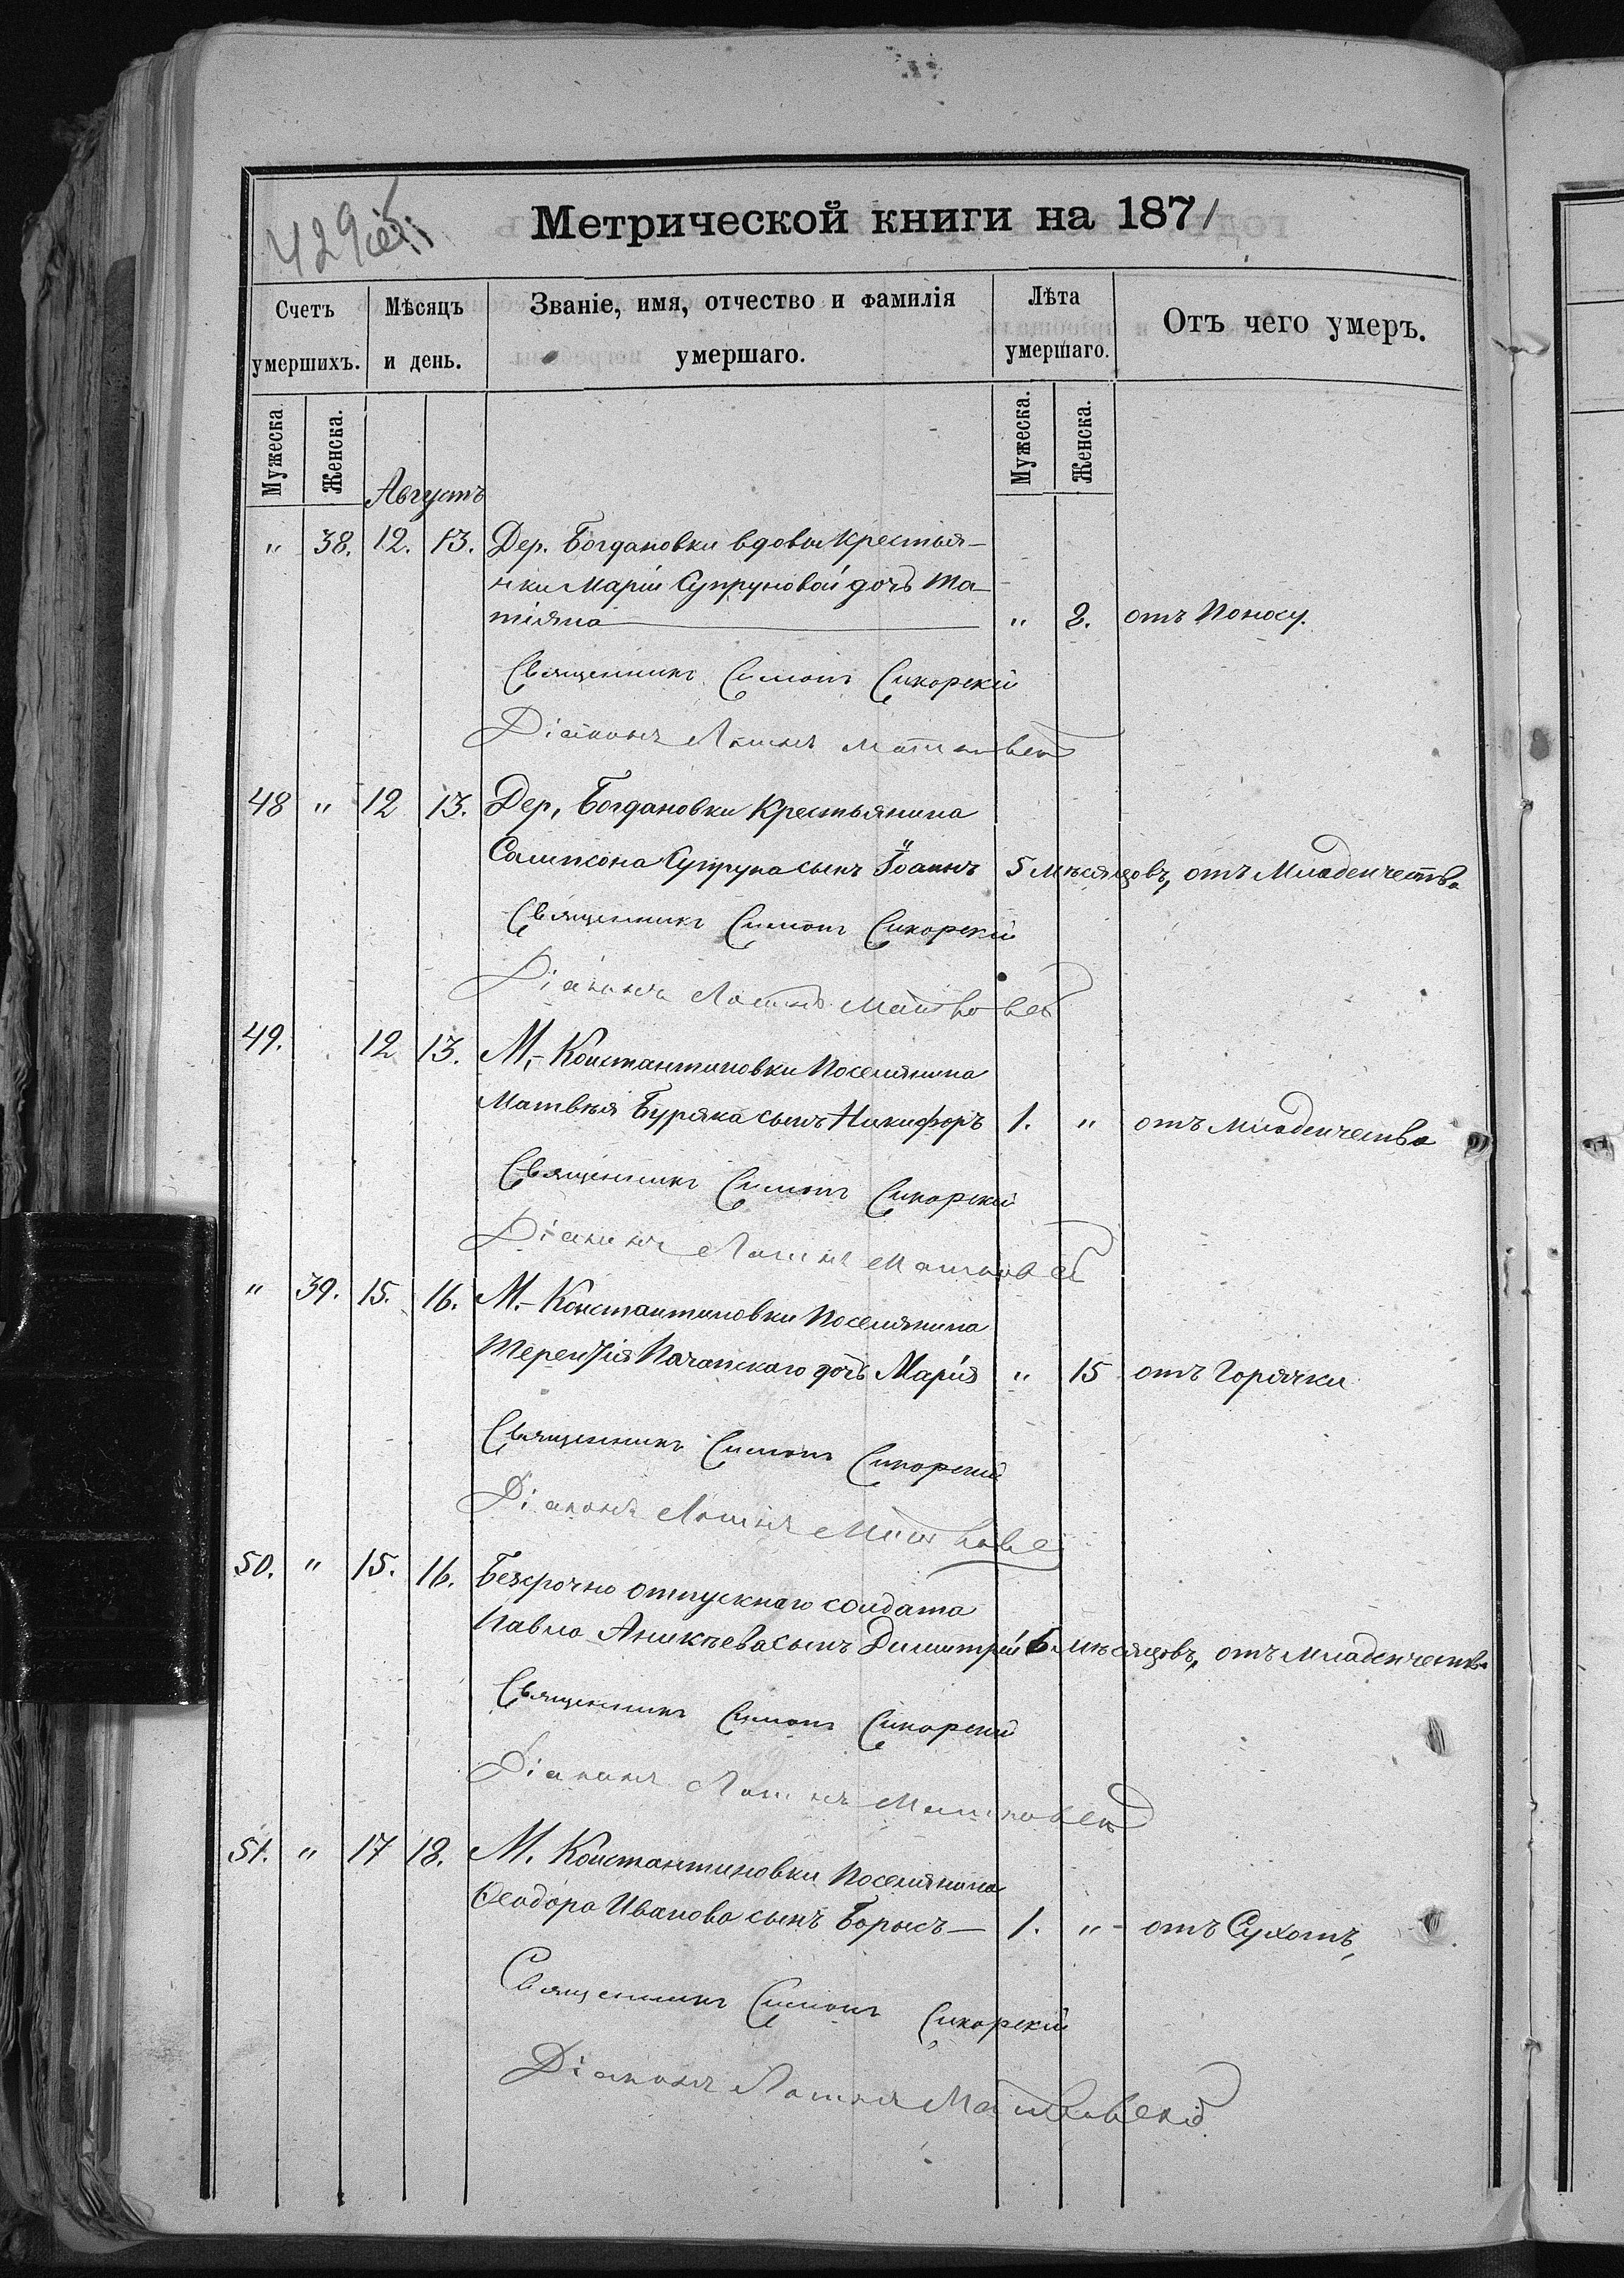 429об.
Метрической книги на 1871
Счетъ умершихъ.
Мѣсяцъ и день.
Званіе, имя, отчество и фамилія умершаго.
Лѣта умершаго.
Отъ чего умеръ.
Мужеска. Женска. Мужеска. Женска.
Августъ
" 38. 12. 13. Дер. Богдановки вдовы Крестья-
нки Маріи Супруновой дочь Та-
тіяна " 2. отъ Поносу.
Священникъ Симонъ Сикорскій
Діаконъ
48 " 12 13. Дер. Богдановки Крестьянина
Сампсона Супруна сынъ Іоаннъ 5 мѣсяцовъ, отъ Младенчества
Священникъ Симонъ Сикорскій
Діаконъ
49. 12 13. М.- Константиновки Поселянина
Матвѣя Буряка сынъ Никифоръ 1. " отъ младенчества
Священникъ Симонъ Сикорскій
Діаконъ
" 39. 15. 16. М.- Константиновки Поселянина
Терентія дочь Марія " 15 отъ Горячки
Священникъ Симонъ Сикорскій
Діаконъ
50. " 15. 16. Безсрочно отпускнаго солдата
Павла Аникѣева сынъ Димитрій 6 мѣсяцовъ, отъ младенчества
Священникъ Симонъ Сикорскій
Діаконъ
51. " 17 18. М. Константиновки Поселянина
Ѳеодора Иванова сынъ Борисъ — 1. " отъ Сухотъ,
Священникъ Симонъ Сикорскій
Діаконъ